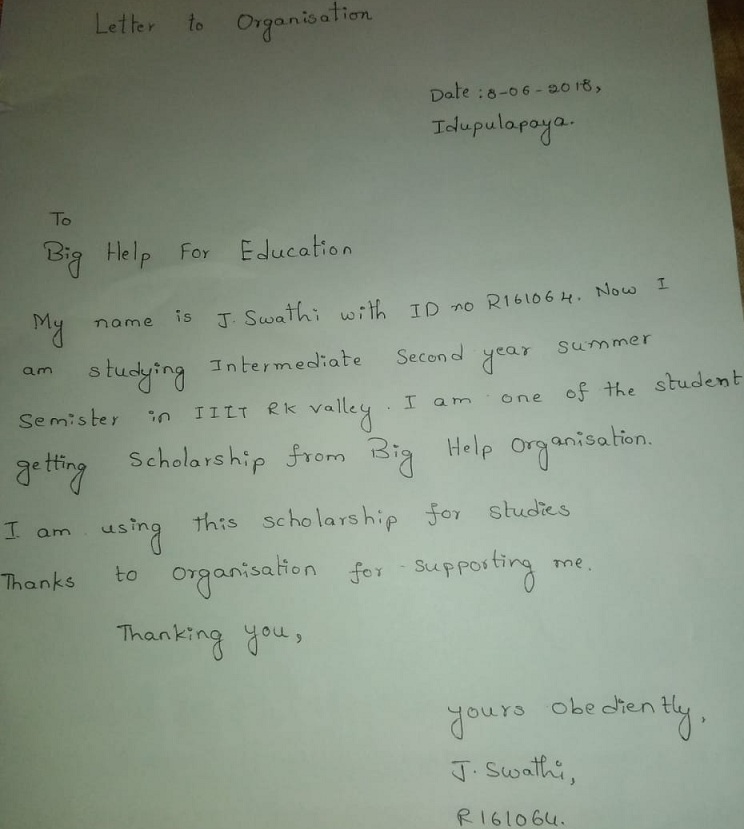 Letter to Organisation
Date : 8-06-2018,
Idupulapaya.
To
Big Help For Education
My name is J. Swathi with ID no R161064. Now I
am studying Intermediate Second year summer
Semister in IIIT RK valley. I am one of the student
getting Scholarship from Big Help Organisation.
I am using this scholarship for studies
Thanks to organisation for supporting me.
Thanking you,
yours obediently,
J. Swathi,
R161064.